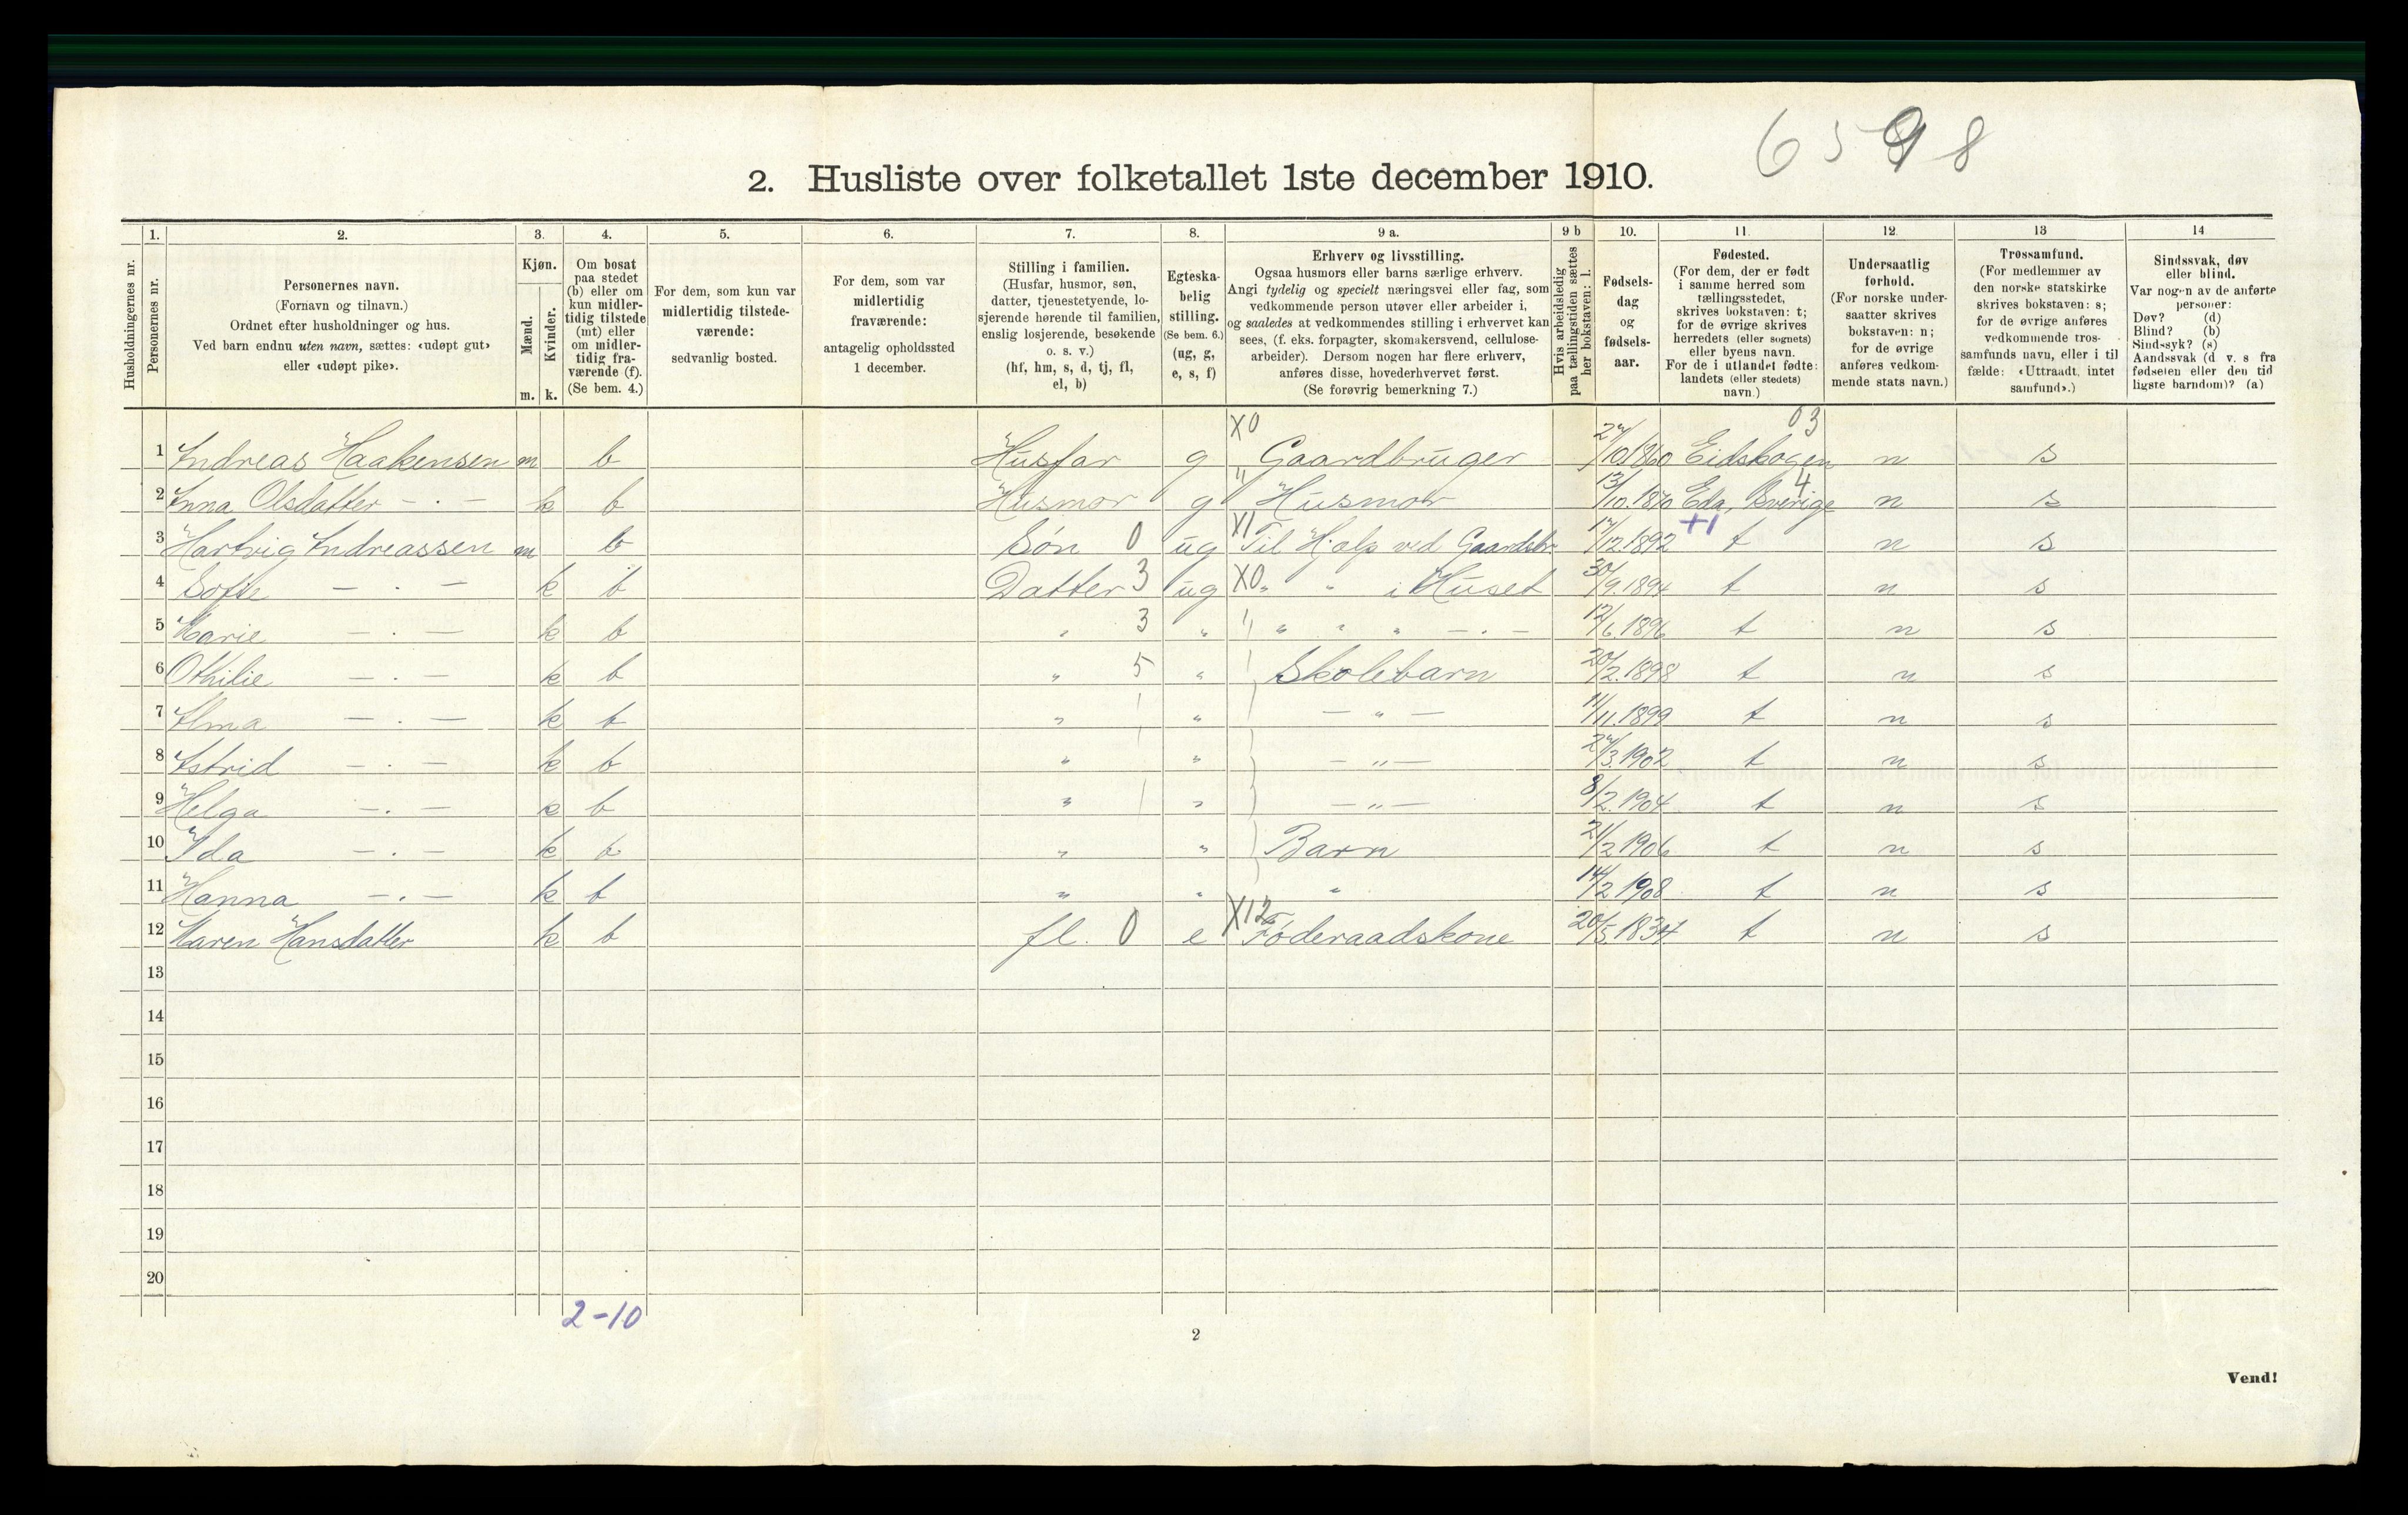 6598
2. Husliste over folketallet 1ste december 1910.
Husholdningernes nr.
1. Personernes nr.
2. Personernes navn.
(Fornavn og tilnavn.)
Ordnet efter husholdninger og hus.
Ved barn endnu uten navn, sættes: «udøpt gut»
eller «udøpt pike».
3. Kjøn.
Mænd. m.
Kvinder. k.
4. Om bosat
paa stedet
(b) eller om
kun midler-
tidig tilstede
(mt) eller
om midler-
tidig fra-
værende (f).
(Se bem. 4.)
5. For dem, som kun var
midlertidig tilstede-
værende:
sedvanlig bosted.
6. For dem, som var
midlertidig
fraværende:
antagelig opholdssted
1 december.
7. Stilling i familien.
(Husfar, husmor, søn,
datter, tjenestetyende, lo-
sjerende hørende til familien,
enslig losjerende, besøkende
o. s. v.)
(hf, hm, s, d, tj, fl,
el, b)
8. Egteska-
belig
stilling.
(Se bem. 6.)
(ug, g,
e, s, f)
9 a. Erhverv og livsstilling.
Ogsaa husmors eller barns særlige erhverv.
Angi tydelig og specielt næringsvei eller fag, som
vedkommende person utøver eller arbeider i,
og saaledes at vedkommendes stilling i erhvervet kan
sees, (f. eks. forpagter, skomakersvend, cellulose-
arbeider). Dersom nogen har flere erhverv,
anføres disse, hovederhvervet først.
(Se forøvrig bemerkning 7.)
9 b Hvis arbeidsledig
paa tællingstiden sættes
her bokstaven: l.
10. Fødsels-
dag
og
fødsels-
aar.
11. Fødested.
(For dem, der er født
i samme herred som
tællingsstedet,
skrives bokstaven: t;
for de øvrige skrives
herredets (eller sognets)
eller byens navn.
For de i utlandet fødte:
landets (eller stedets)
navn.)
12. Undersaatlig
forhold.
(For norske under-
saatter skrives
bokstaven: n;
for de øvrige
anføres vedkom-
mende stats navn.)
13 Trossamfund.
(For medlemmer av
den norske statskirke
skrives bokstaven: s;
for de øvrige anføres
vedkommende tros-
samfunds navn, eller i til
fælde: «Uttraadt, intet
samfund».)
14 Sindssvak, døv
eller blind.
Var nogen av de anførte
personer:
Døv? (d)
Blind? (b)
Sindssyk? (s)
Aandssvak (d. v. s. fra
fødselen eller den tid
ligste barndom)? (a)
1 Andreas Haakensen m b Husfar g X0 Gaardbruger 27/10 1860 Eidskogen 03 n s
2 Anna Olsdatter — . — k b Husmor g " Husmor 13/10.1870 Eda, Sverige 4 n s
3 Hartvig Andreassen m b Søn 0 ug X1 Til Hjælp ved Gaardsbr. 17/12.1892 +1 t n s
4 Sofie — . — k b Datter 3 ug X0 " " i Huset 30/9.1894 t n s
5 Marie — . — k b " 3 " " " " " — . — 12/6.1896 t n s
6 Othilie — . — k b " 5 " Skolebarn 20/2.1898 t n s
7 Alma — . — k b " " — " — 11/11.1899 t n s
8 Astrid — . — k b " " — " — 27/3.1902 t n s
9 Helga — . — k b " " — " — 8/2.1904 t n s
10 Ida — . — k b " " Barn 21/2 1906 t n s
11 Hanna — . — k b " " " 14/2 1908 t n s
12 Karen Hansdatter k b fl. 0 e X12 Føderaadskone 20/5.1834 t n s
13
14
15
16
17
18
19
20
2-10
2
Vend!